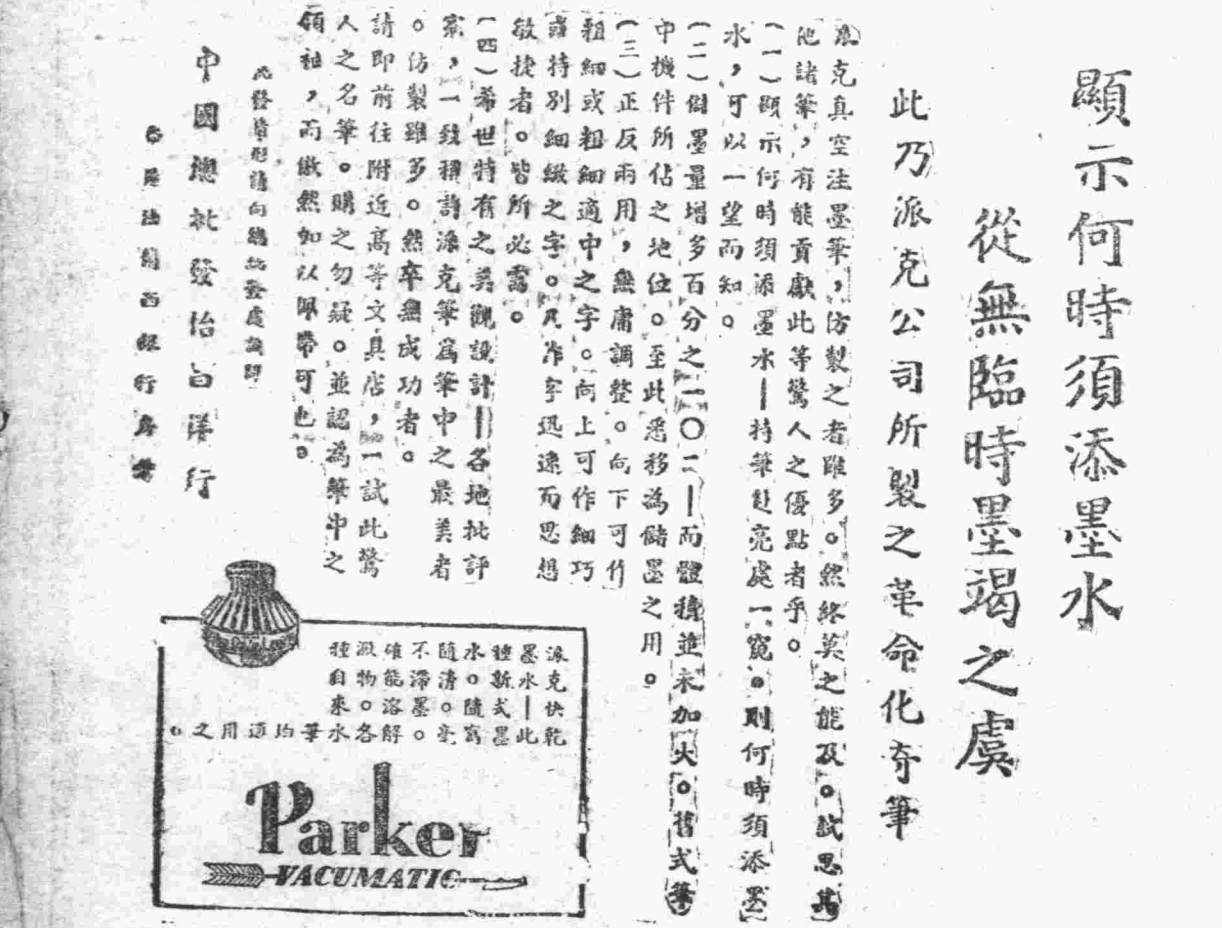 顯示何時須添墨水
從無臨時墨竭之虞
此乃派克公司所製之革命化奇筆
派克真空注墨筆，仿製之者雖多。然終莫之能及。試思其
他諸筆，有能貢獻此等驚人之優點者乎。
（一）顯示何時須添墨水—持筆赴亮處一窺。則何時須添墨
水，可以一望而知。
（二）儲墨量增多百分之一〇二—而體積並未加大。舊式筆
中機件所佔之地位。至此悉移為儲墨之用。
（三）正反兩用，無庸調整。向下可作
粗細或粗細適中之字。向上可作細巧
或特別細緻之字。凡作字迅速而思想
敏捷者。皆所必需。
（四）希世特有之美觀設計—各地批評
家，一致稱許派克筆為筆中之最美者
。仿製雖多。然卒無成功者。
請即前往附近高等文具店，一試此驚
人之名筆。購之勿疑。並認為筆中之
領袖，而傲然如以佩帶可也。
批發章程請向總批發處函詢
中國總批發怡白洋行
香港法蘭西銀行房
派克快乾
墨水—此
種新式墨
水。隨寫
隨清。毫
不滯墨。
確能溶解
澱物。各
種自來水
筆均適用之。
Parker
VACUMATIC